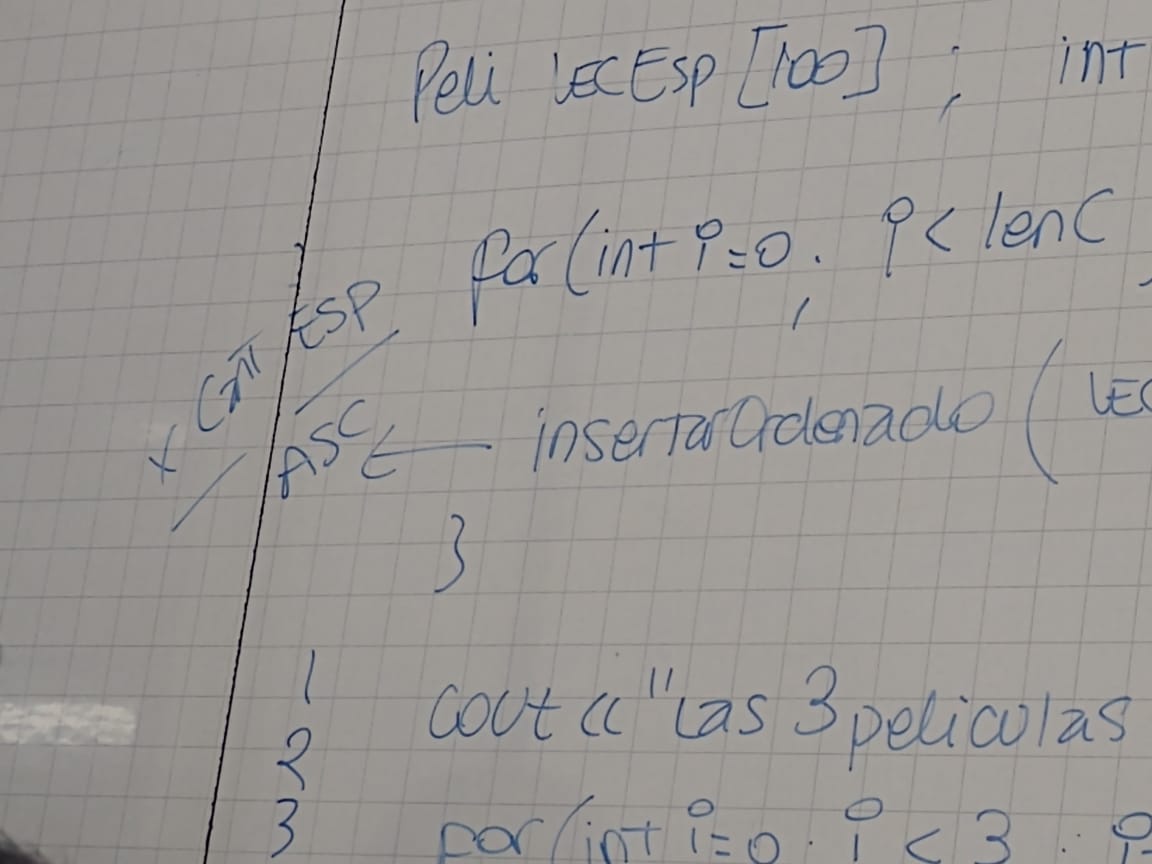 Peli VECEsp [100] ; int
for(int i=0; i< lenC
x Cant ESP
ASC ← insertarOrdenado ( VEC
}
1
cout << "Las 3 peliculas
2
3 for(int i=0; i < 3 ; i